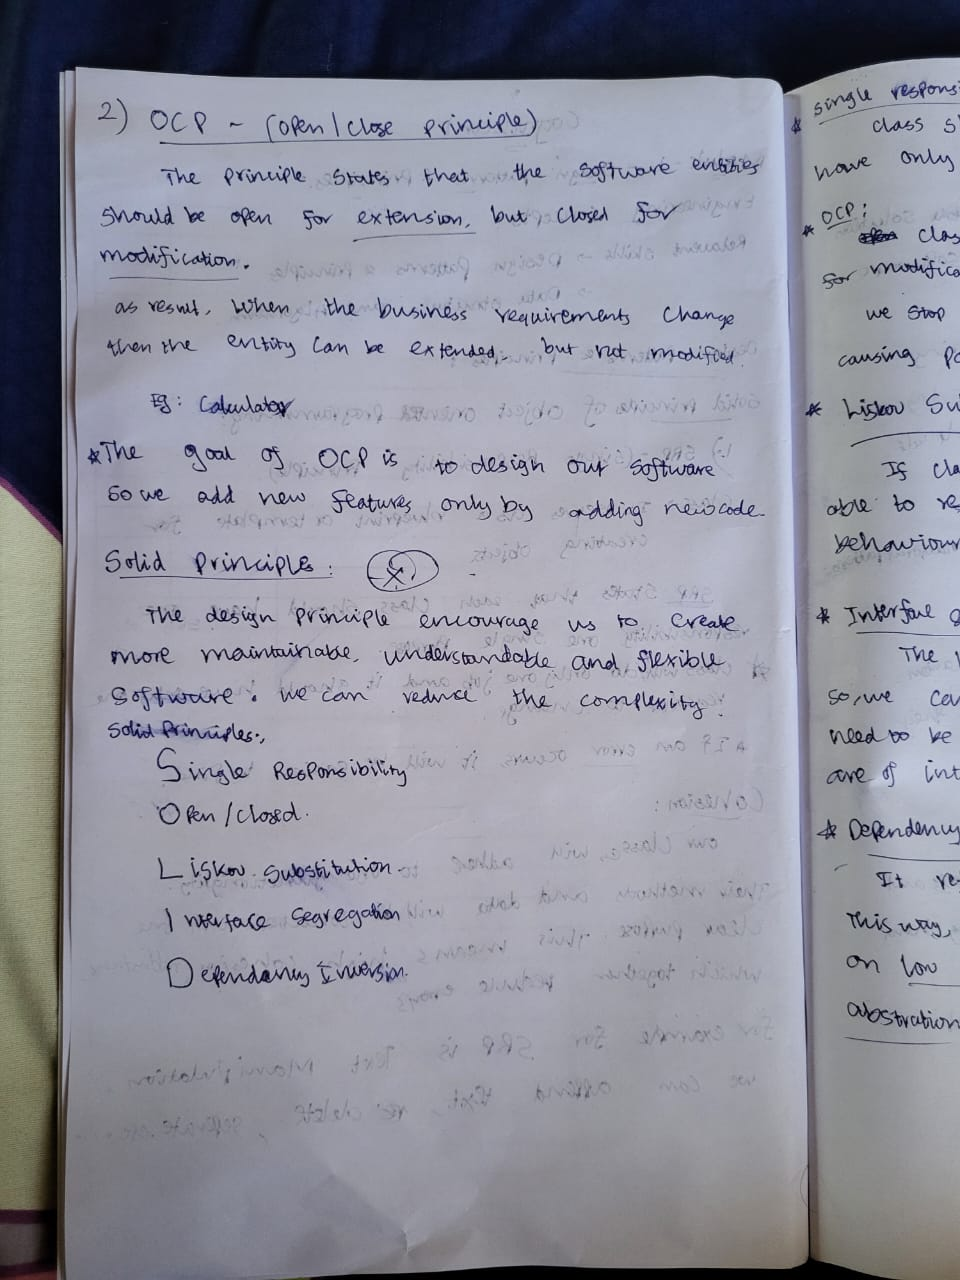 2) OCP ~ (open/close principle)
The principle states that the software entities
should be open for extension, but closed for
modification.
as result, when the business requirements change
then the entity can be extended, but not modified.
Eg: Calculator
*The goal of OCP is to design our software
so we add new features only by adding new code.
Solid principles:
The design principle encourage us to create
more maintainable, understandable and flexible
software. we can reduce the complexity.
Solid Principles:,
Single Responsibility
Open/closed.
Liskov Substitution
Interface Segregation
Dependancy Inversion.
* single respons
class s
have only
* OCP:
clas
for modifica
we stop
causing po
* Liskov Su
If cla
able to re
behaviour
* Interface
The
so, we can
need to be
are of int
* Dependency
It re
This way,
on low
abstration